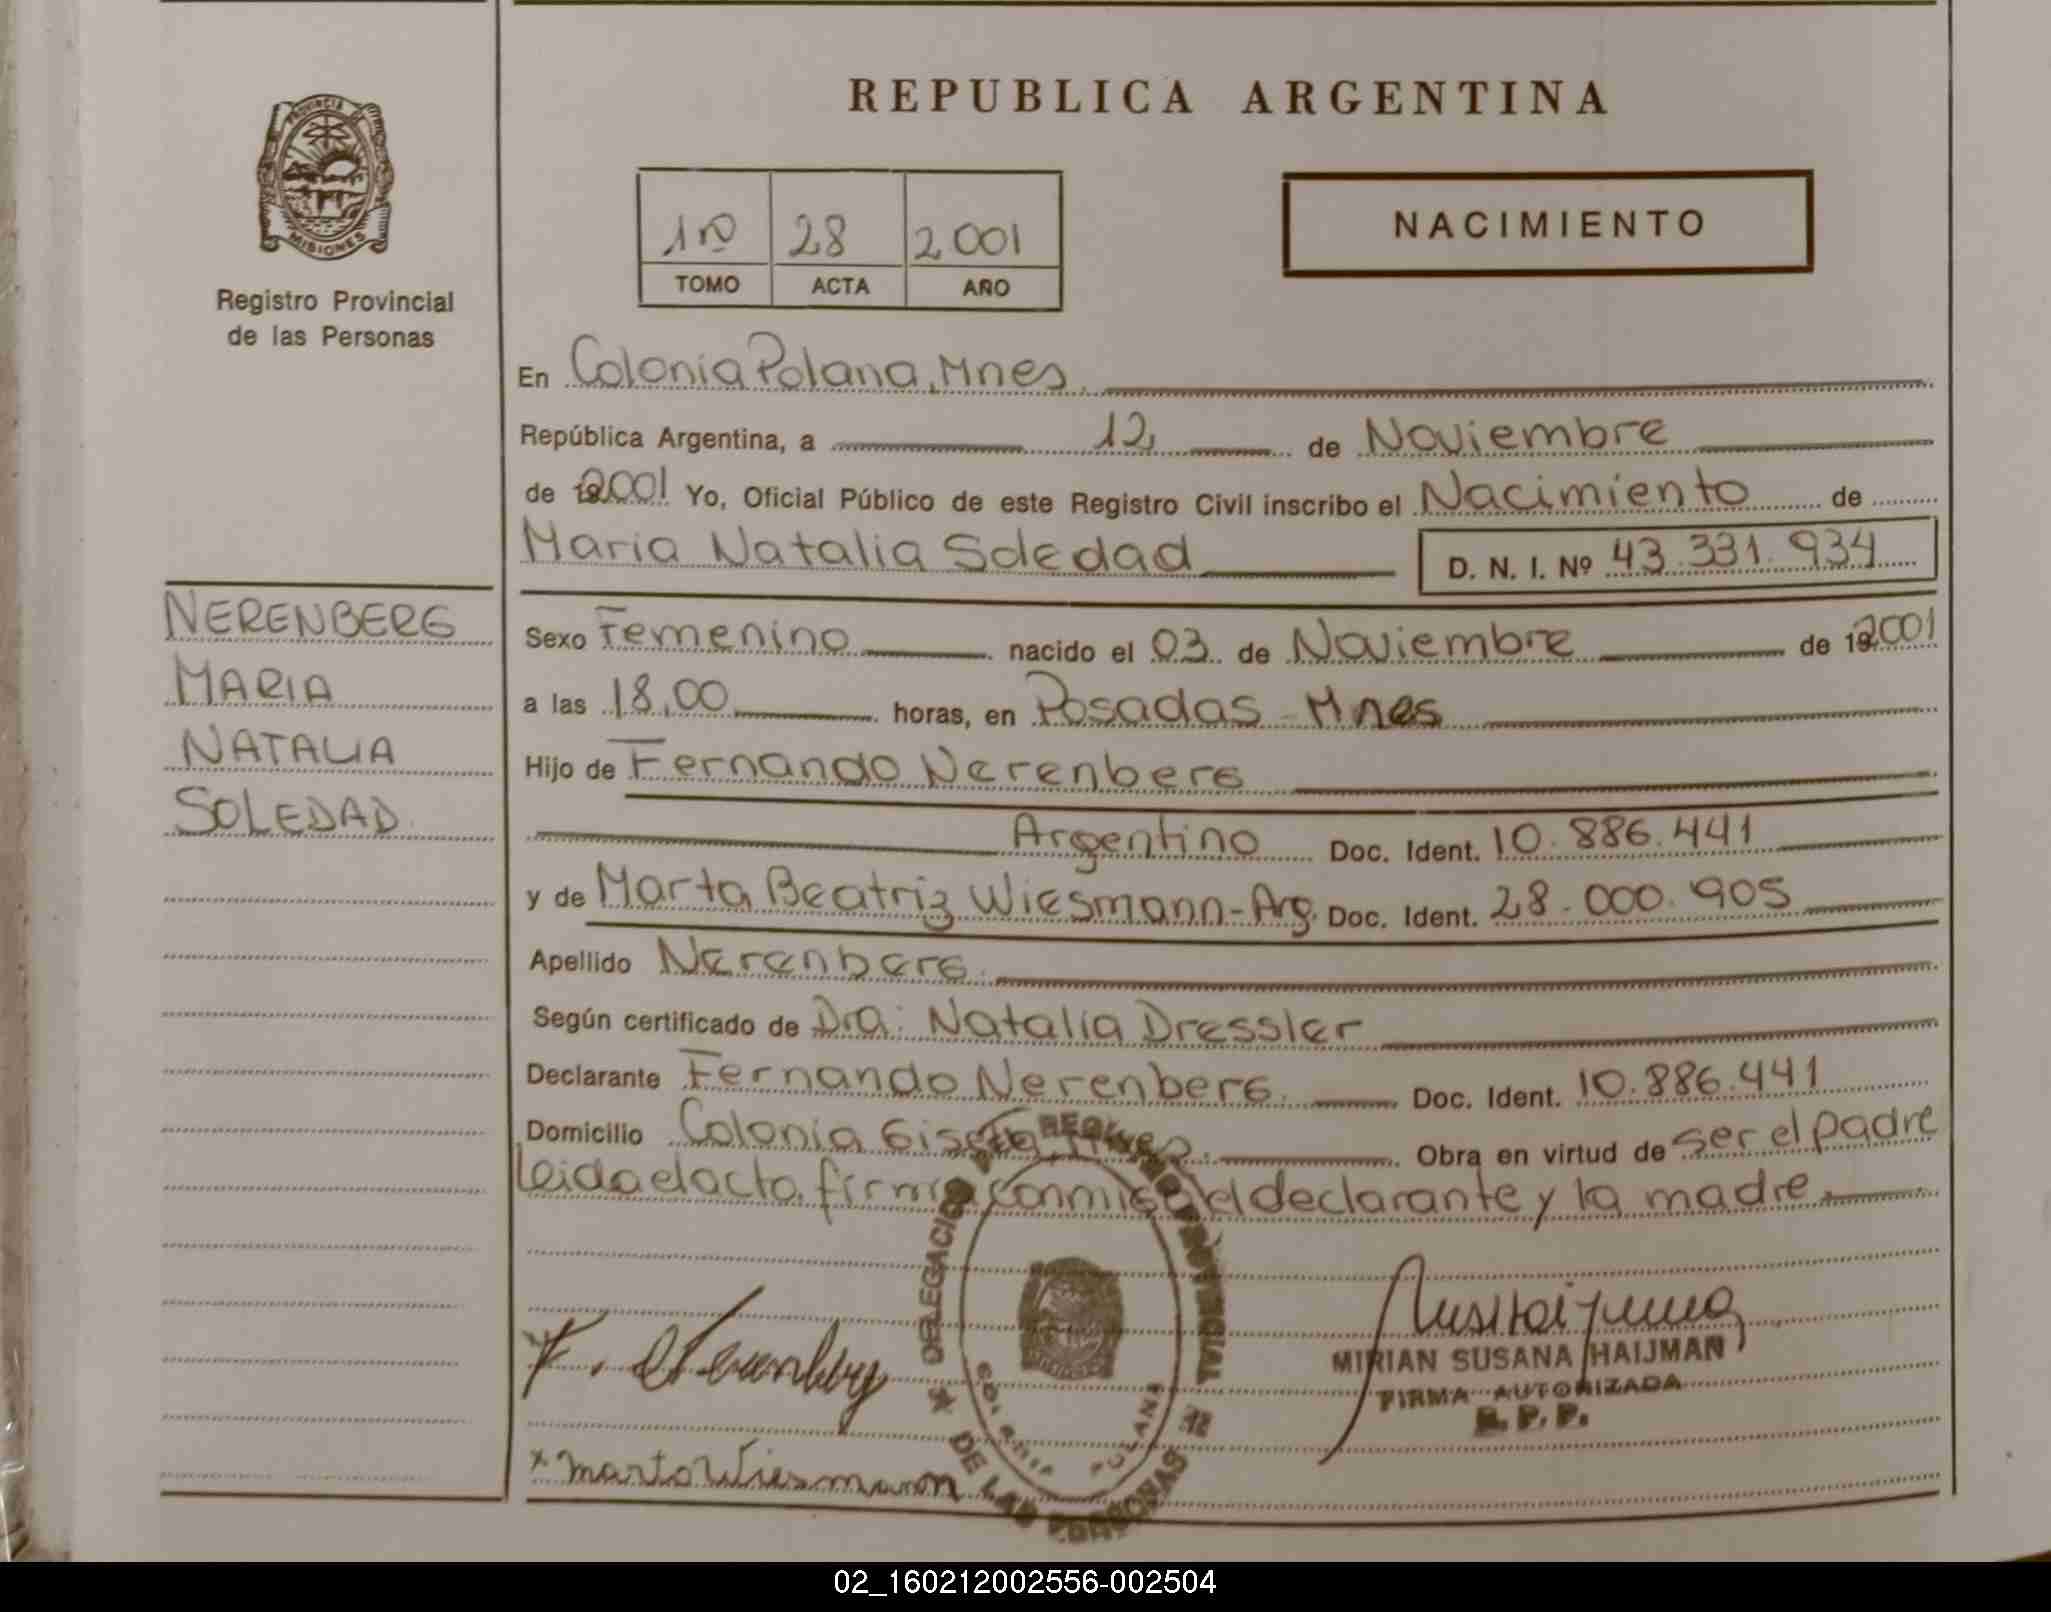 REPUBLICA ARGENTINA
PROVINCIA DE
MISIONES
Registro Provincial
de las Personas
1ro 28 2001
TOMO ACTA AÑO
NACIMIENTO
En Colonia Polana, Mnes.
República Argentina, a 12 de Noviembre
de 2001 Yo, Oficial Público de este Registro Civil inscribo el Nacimiento de
Maria Natalia Soledad D. N. I. Nº 43.331.934
NERENBERG
MARIA
NATALIA
SOLEDAD
Sexo Femenino nacido el 03 de Noviembre de 2001
a las 18,00 horas, en Posadas - Mnes
Hijo de Fernando Nerenberg
Argentino Doc. Ident. 10.886.441
y de Marta Beatriz Wiesmann-Arg. Doc. Ident. 28.000.905
Apellido Nerenberg
Según certificado de Dra: Natalia Dressler
Declarante Fernando Nerenberg Doc. Ident. 10.886.441
Domicilio Colonia Obra en virtud de ser el padre
Leida el acta firma conmigo el declarante y la madre
DELEGACION REGISTRO PROVINCIAL DE LAS PERSONAS
COLONIA POLANA
F. Nerenberg
MIRIAN SUSANA HAIJMAN
FIRMA AUTORIZADA
R. P. P.
x Marta Wiesmann
02_160212002556-002504